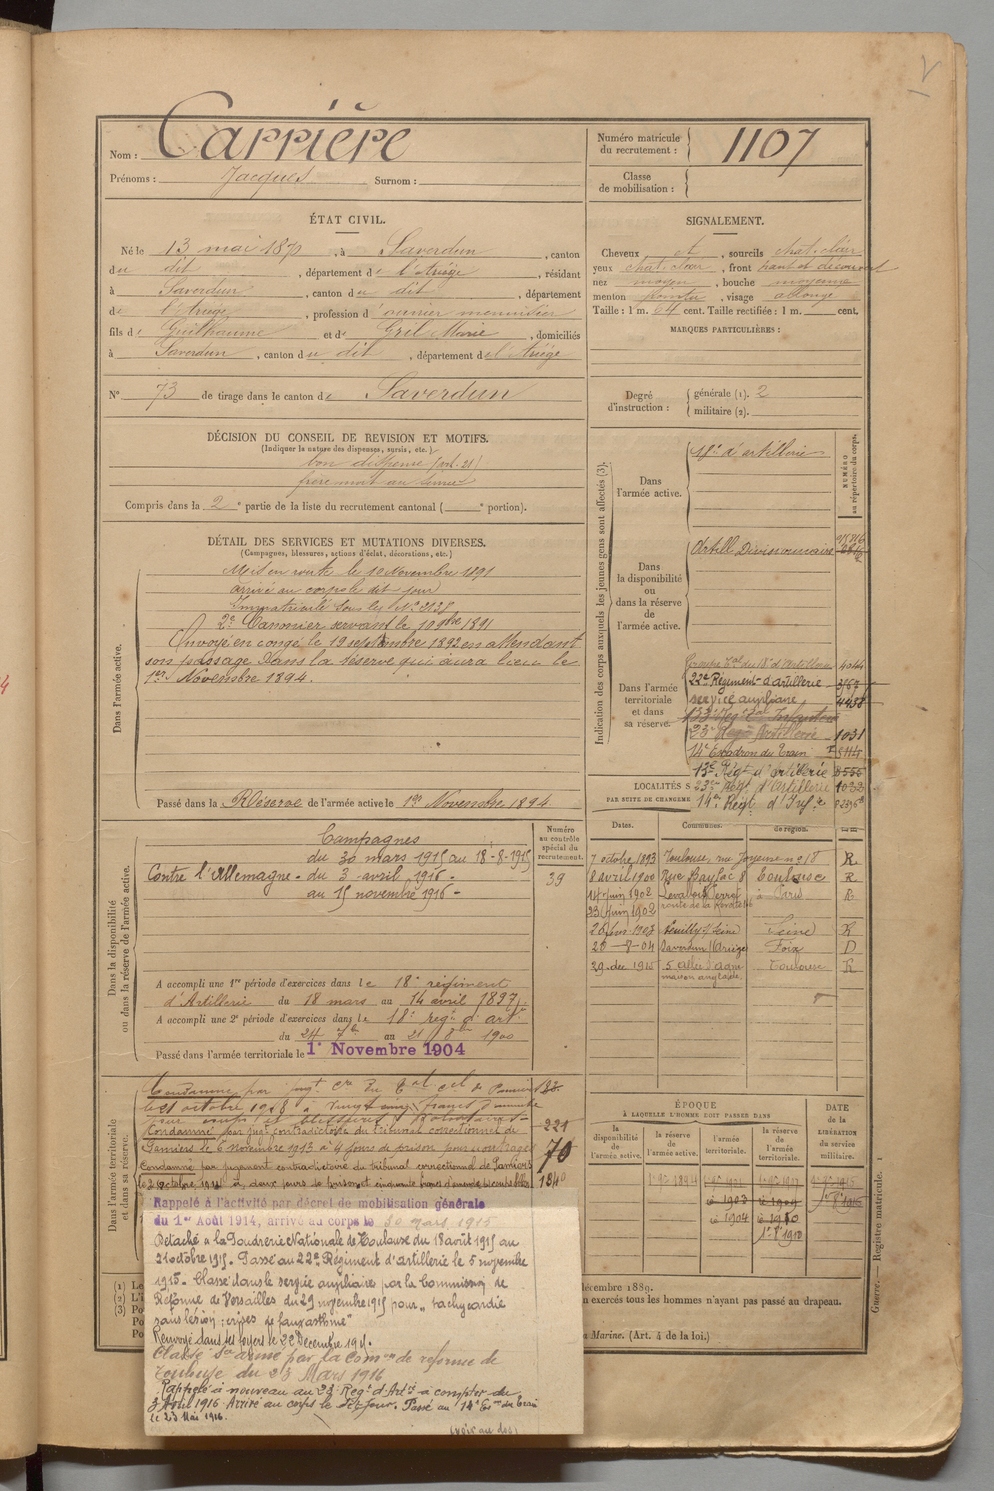 Nom : Carrière
Prénoms : Jacques Surnom :
Numéro matricule du recrutement : 1107
Classe de mobilisation :
ÉTAT CIVIL.
Né le 13 mai 1870, à Saverdun, canton
du dit, département de l'Ariège, résidant
à Saverdun, canton du dit, département
de l'Ariège, profession d'ouvrier menuisier
fils de Guilhaume et de Gril Marie, domiciliés
à Saverdun, canton du dit, département de l'Ariège
N° 73 de tirage dans le canton de Saverdun
SIGNALEMENT.
Cheveux et, sourcils chat. clair
yeux chat. clair, front haut et découvert
nez moyen, bouche moyenne
menton pointu, visage allongé
Taille : 1 m. 64 cent. Taille rectifiée : 1 m. cent.
MARQUES PARTICULIÈRES :
Degré d'instruction : générale (1). 2
militaire (2).
DÉCISION DU CONSEIL DE REVISION ET MOTIFS.
(Indiquer la nature des dispenses, sursis, etc.)
bon dispensé (art. 21)
frère mort au service
Compris dans la 2e partie de la liste du recrutement cantonal ( e portion).
DÉTAIL DES SERVICES ET MUTATIONS DIVERSES.
(Campagnes, blessures, actions d'éclat, décorations, etc.)
Dans l'armée active.
Mis en route le 10 Novembre 1891
arrivé au corps le dit jour
Immatriculé sous le N°
2e Canonnier servant le 10 9bre 1891
Envoyé en congé le 19 septembre 1892 en attendant
son passage dans la réserve qui aura lieu le
1er Novembre 1894.
Passé dans la Réserve de l'armée active le 1er Novembre 1894
Indication des corps auxquels les jeunes gens sont affectés (3).
NUMÉRO au répertoire du corps.
Dans l'armée active.
18e d'artillerie
Dans la disponibilité ou dans la réserve de l'armée active.
Artill Divisionnaire
Dans l'armée territoriale et dans sa réserve.
Groupe Tal du 18e d'Artillerie 4044
22e Régiment d'artillerie
service auxiliaire 4438
133e Regt Tal Infanterie
23e Régt Artillerie 1031
14e Escadron du Train
13e Régt d'artillerie
23e Régt d'Artillerie 1033
14e Régt d'Inf.
LOCALITÉS S
PAR SUITE DE CHANGEME
Dates. Communes. de région.
7 octobre 1893 Toulouse, rue Joyeuse n° 18 R
8 avril 1900 Rue Baylac 8 Toulouse R
14 Juin 1902 Levallois Perret à Paris R
23 Juin 1902 route de la Révolte
26 1903 Neuilly s/ Seine Seine R
28-8-04 Saverdun (Ariège) Foix D
29 dec 1915 5 allée Toulouse R
maison anglade
Dans la disponibilité ou dans la réserve de l'armée active.
Numéro au contrôle spécial du recrutement.
39
Campagnes
du 30 mars 1915 au 18-8-1915
Contre l'Allemagne - du 3 avril 1916 -
au 15 novembre 1916 -
A accompli une 1re période d'exercices dans le 18e régiment
d'Artillerie du 18 mars au 14 avril 1897.
A accompli une 2e période d'exercices dans le 18e regt d'artie
du 24 7bre au 21 8bre 1900
Passé dans l'armée territoriale le 1er Novembre 1904
Dans l'armée territoriale et dans sa réserve.
Condamné par jugt
le 21 octobre 1908 à vingt cinq francs d'amende
pour coups et blessures volontaires
Condamné par jugt contradictoire du tribunal correctionnel de 221
Pamiers le 6 novembre 1913 à 4 jours de prison pour outrages 70
Condamné par jugement contradictoire du tribunal correctionnel de Pamiers
le 2 octobre, 1914 à deux jours de prison et cinquante francs d'amende
Rappelé à l'activité par décret de mobilisation générale
du 1er Août 1914, arrivé au corps le 30 mars 1915
Détaché à la Poudrerie Nationale de Toulouse du 18 août 1915 au
21 octobre 1915. Passé au 22e Régiment d'artillerie le 5 novembre
1915. Classé dans le service auxiliaire par la Commission de
Réforme de Versailles du 29 novembre 1915 pour "tachycardie
sans lésion ; crises de faux asthme"
Renvoyé dans ses foyers le 22 Decembre 1915.
Classé sce armé par la Comon de reforme de
Toulouse du 23 Mars 1916
Rappelé à nouveau au 23e Régt d'Artie à compter du
3 Avril 1916. Arrivé au corps le dit jour. Passé au 14e Eon du train
le 23 Mai 1916.
(voir au dos)
ÉPOQUE
À LAQUELLE L'HOMME DOIT PASSER DANS
la disponibilité de l'armée active. la réserve de l'armée active. l'armée territoriale. la réserve de l'armée territoriale.
DATE de la LIBÉRATION du service militaire.
1903 1909
1904 1910
décembre 1889.
en exercés tous les hommes n'ayant pas passé au drapeau.
a Marine. (Art. 4 de la loi.)
(1) Le
(2) L'i
(3) Po
Po
Po
Guerre. — Registre matricule. 1